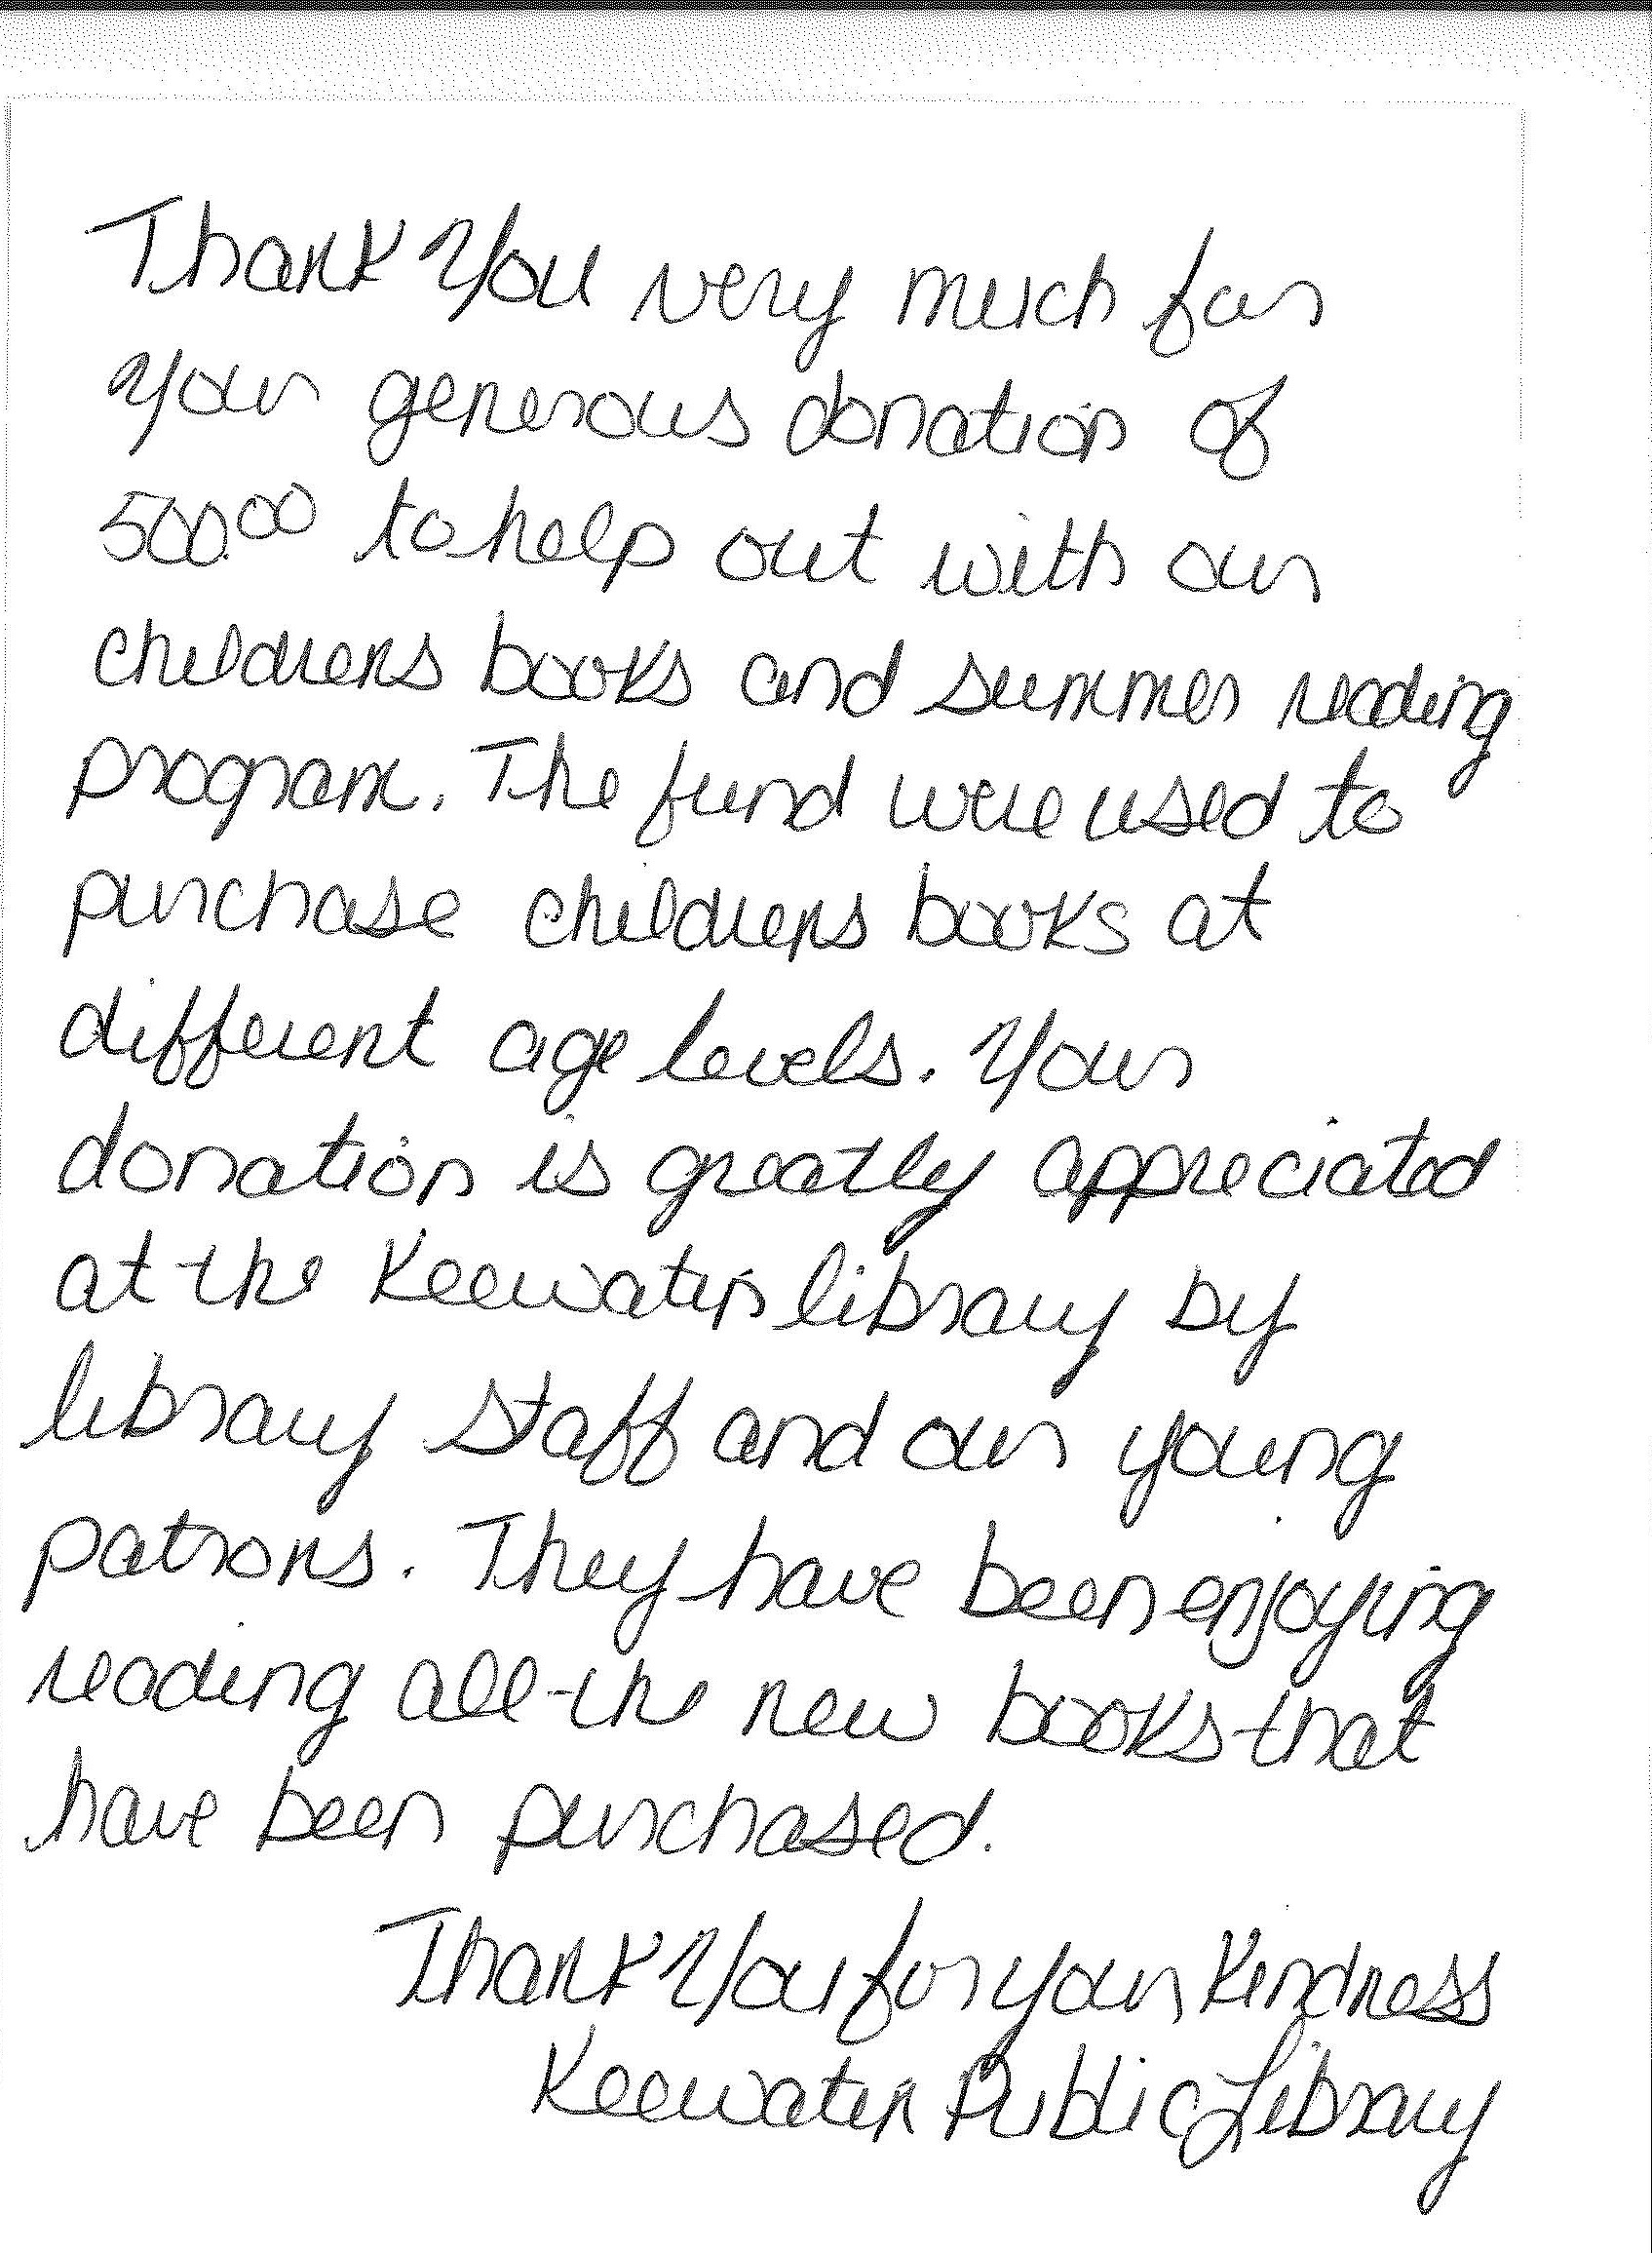 Thank You very much for
your generous donation of
500.00 to help out with our
childrens books and summer reading
program. The fund were used to
purchase childrens books at
different age levels. Your
donation is greatly appreciated
at the Keewatin library by
library staff and our young
patrons. They have been enjoying
reading all the new books that
have been purchased.
Thank You for your Kindness
Keewatin Public Library